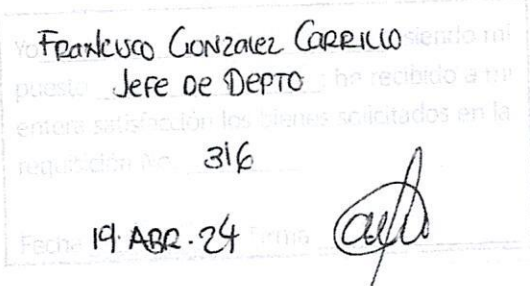 Yo, Francisco Gonzalez Carrillo siendo mi
puesto Jefe de Depto ha recibido a mi
entera satisfacción los bienes solicitados en la
requisición No. 316
Fecha 19. ABR. 24 firma